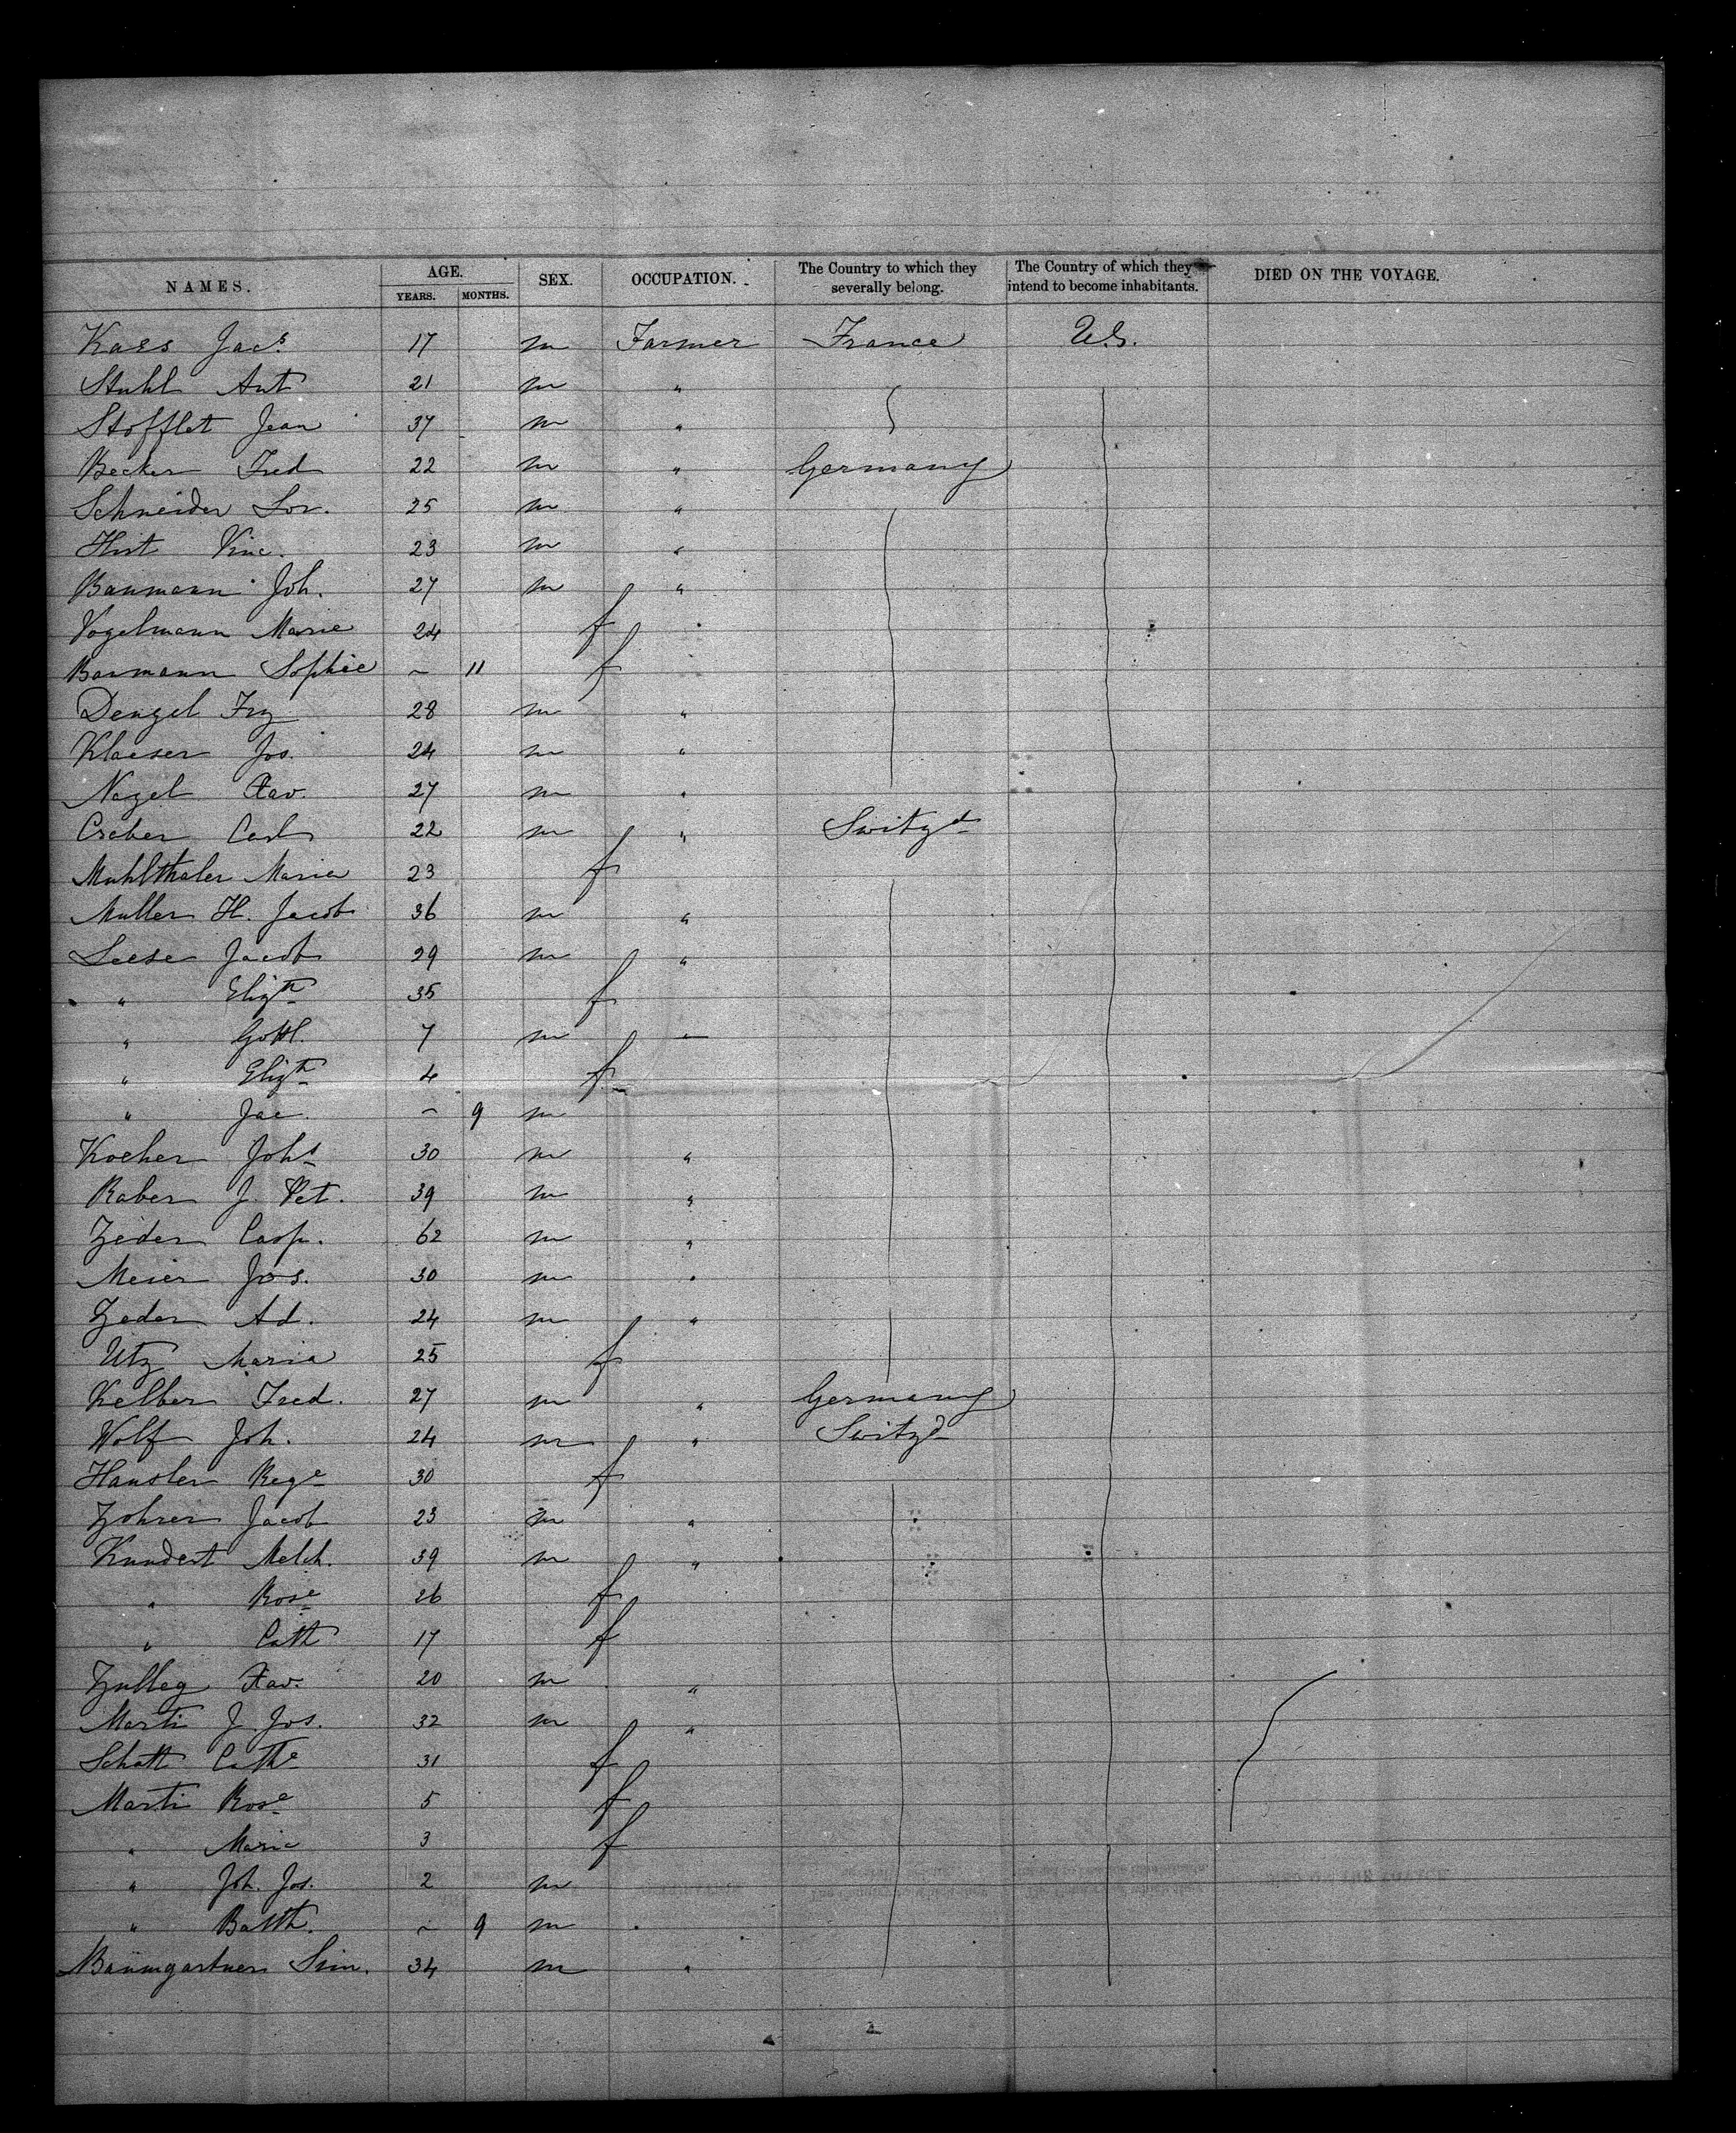 NAMES. AGE. SEX. OCCUPATION. The Country to which they severally belong. The Country of which they intend to become inhabitants. DIED ON THE VOYAGE.
YEARS. MONTHS.
Kass Jacs. 17 m Farmer France U.S.
Stuhl Ant 21 m "
Stofflet Jean 37 m "
Becker Fred 22 m " Germany
Schneider Lor. 25 m "
Hirt Vinc. 23 m "
Baumann Joh. 27 m "
Vogelmann Marie 24 f
Baumann Sophie ~ 11 f
Dengel Frz 28 m "
Klaeser Jos. 24 m "
Nagel Xav. 27 m "
Creber Carl 22 m " Switzd
Muhlthaler Maria 23 f
Muller H. Jacob 36 m "
Leese Jacob 29 m "
" Elizth 35 f
" Gottl. 7 m —
" Elizth 4 f
" Jac. ~ 9 m
Kocher Johs 30 m "
Raber J. Pet. 39 m "
Zeder Casp. 62 m "
Meier Jos. 30 m "
Zeder Ad. 24 m "
Utz Maria 25 f
Kelber Fred. 27 m " Germany
Wolf Joh. 24 m " Switzd
Hausler Rege 30 f
Zohrer Jacob 23 m "
Kundert Melch. 39 m "
" Rose 26 f
" Cath 17 f
Zulleg Xav. 20 m "
Marti J. Jos. 32 m "
Schott Cathe 31 f
Marti Rose 5 f
" Marie 3 f
" Joh. Jos. 2 m
" Balth. ~ 9 m
Baumgartner Sim. 34 m "